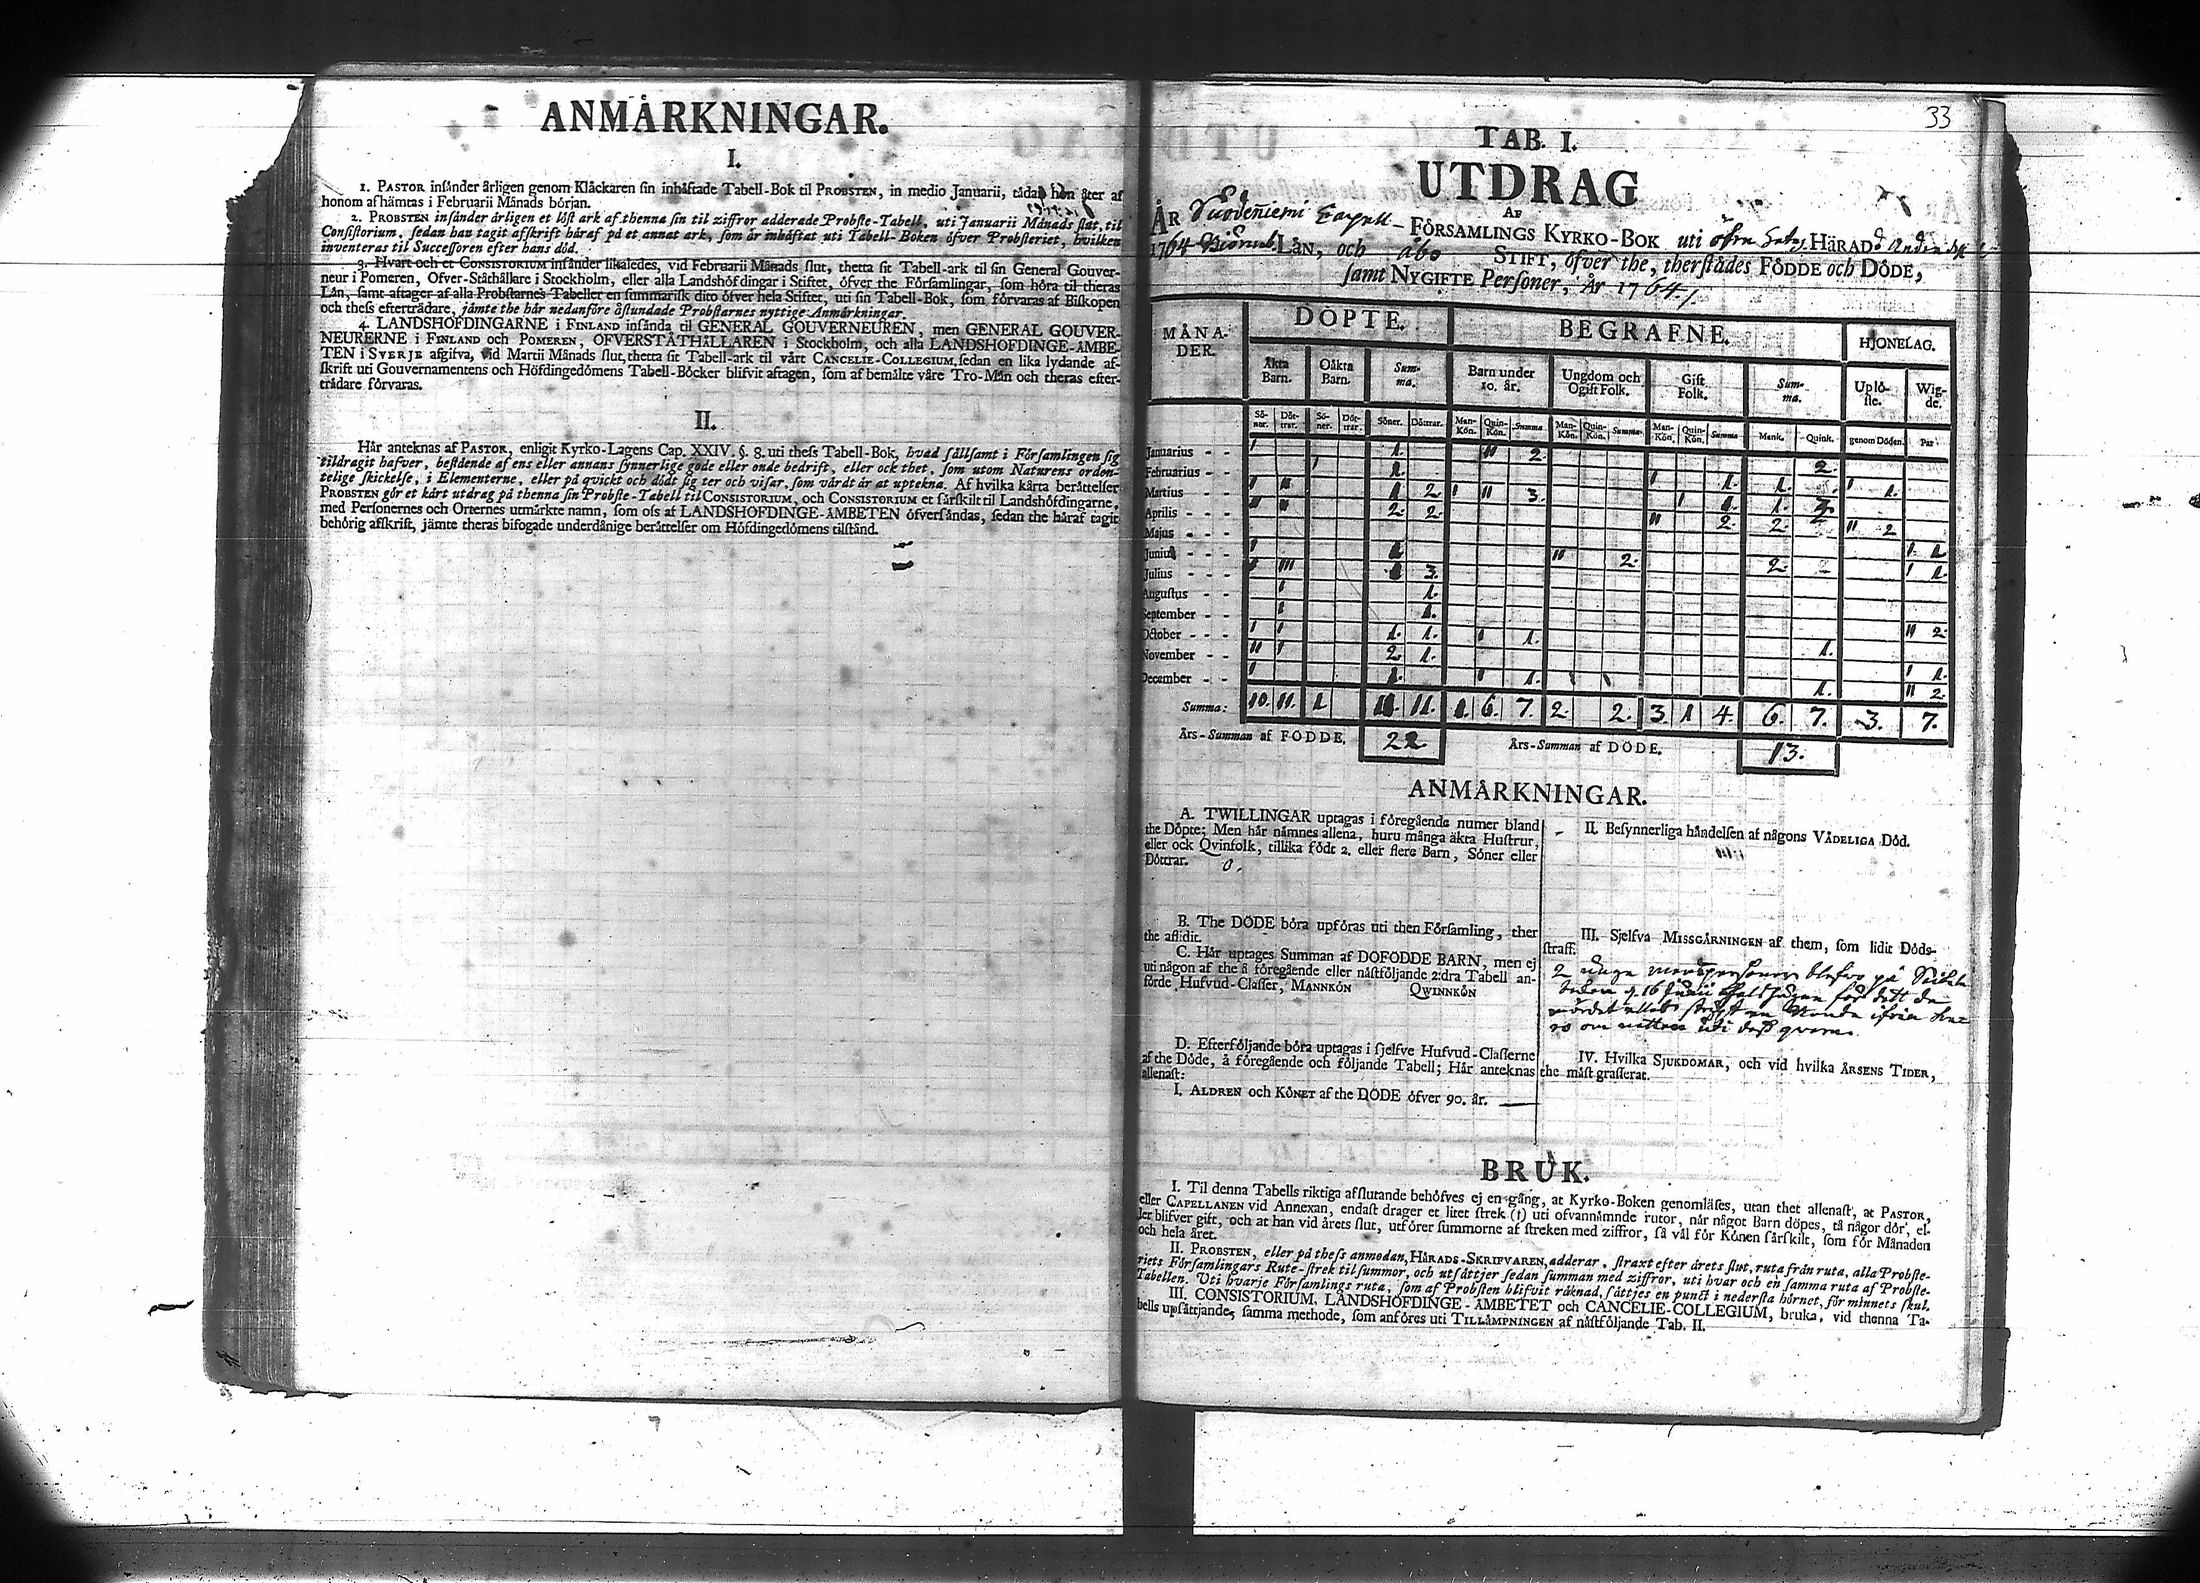 ANMÄRKNINGAR.
I.
1. PASTOR insänder årligen genom Klåckaren sin inhäftade Tabell-Bok til PROBSTEN, in medio Januarii, tådan hon åter af
honom afhämtas i Februarii Månads början.
2. PROBSTEN insänder årligen et löst ark af thenna sin til ziffror adderade Probste-Tabell, uti Januarii Månads slut, til
Consistorium, sedan han tagit afskrift häraf på et annat ark, som är inhäftat uti Tabell-Boken öfver Probsteriet, hvilken
inventeras til Successoren efter hans död.
3. Hvart och et CONSISTORIUM insänder likaledes, vid Februarii Månads slut, thetta sit Tabell-ark til sin General Gouver-
neur i Pomeren, Öfver-Ståthållare i Stockholm, eller alla Landshöfdingar i Stiftet, öfver the Församlingar, som höra til theras
Län, samt aftager af alla Probstarnes Tabeller en summarisk dito öfver hela Stiftet, uti sin Tabell-Bok, som förvaras af Biskopen
och thess efterträdare, jämte the här nedanföre åstundade Probstarnes nyttige Anmärkningar.
4. LANDSHÖFDINGARNE i FINLAND insända til GENERAL GOUVERNEUREN, men GENERAL GOUVER-
NEURERNE i FINLAND och POMEREN, ÖFVERSTÅTHÅLLAREN i Stockholm, och alla LANDSHÖFDINGE-ÄMBE-
TEN i SVERJE afgifva, vid Martii Månads slut, thetta sit Tabell-ark til vårt CANCELIE-COLLEGIUM, sedan en lika lydande af-
skrift uti Gouvernamentens och Höfdingedömens Tabell-Böcker blifvit aftagen, som af bemälte våre Tro-Män och theras efter-
trädare förvaras.
II.
Här anteknas af PASTOR, enligit Kyrko-Lagens Cap. XXIV. §. 8. uti thess Tabell-Bok, hvad sällsamt i Församlingen sig
tildragit hafver, bestående af ens eller annans synnerlige gode eller onde bedrift, eller ock thet, som utom Naturens orden-
telige skickelse, i Elementerne, eller på qvickt och dödt sig ter och visar, som värdt är at uptekna. Af hvilka kårta berättelser
PROBSTEN gör et kårt utdrag på thenna sin Probste-Tabell til CONSISTORIUM, och CONSISTORIUM et särskilt til Landshöfdingarne,
med Personernes och Orternes utmärkte namn, som oss af LANDSHÖFDINGE-ÄMBETEN öfversändas, sedan the häraf tagit
behörig afskrift, jämte theras bifogade underdånige berättelser om Höfdingedömens tilstånd.
33
TAB. I.
UTDRAG
AF
ÅR Suodeniemi Capell - FÖRSAMLINGS KYRKO-BOK uti öfra HÄRAD
1764 Biörneb. LÄN, och Åbo STIFT, öfver the, therstädes FÖDDE och DÖDE,
samt NYGIFTE Personer, År 1764.
MÅNA-DER. DÖPTE. BEGRAFNE. HJONELAG.
Äkta Barn. Oäkta Barn. Sum-ma. Barn under 10. år. Ungdom och Ogift Folk. Gift Folk. Sum-ma. Uplö-ste. Wig-de.
Sö-ner. Döt-trar. Sö-ner. Döt-trar. Söner. Döttrar. Man-Kön. Quin-Kön. Summa Man-Kön. Quin-Kön. Summa Man-Kön. Quin-Kön. Summa Mank. Quink. genom Döden. Par
Januarius - - I 1. II 2. 2.
Februarius - - I 1. I 1. 1. I 1.
Martius - - I II 1 2 I II 3. I 1. 1.
Aprilis - - II II 2. 2. II 2. 2. II 2
Majus - -
Junius - - I 1 II 2. 2. I 1
Julius - - I III 1 3. I 1.
Augustus - - I 1.
September - - I 1.
October - - I I 1. 1. I 1. 1. II 2
November - - II I 2 1. I 1.
December - - I 1. I 1. 1. II 2.
Summa: 10. 11. 1 11. 11. 1. 6. 7. 2. 2. 3. 1 4. 6. 7. 3. 7.
Års-Summan af FÖDDE. 22
Års-Summan af DÖDE. 13.
ANMÄRKNINGAR.
A. TWILLINGAR uptagas i föregående numer bland
the Döpte; Men här nämnes allena, huru många äkta Hustrur,
eller ock Qvinfolk, tillika födt 2. eller flere Barn, Söner eller
Döttrar. 0.
B. The DÖDE böra upföras uti then Församling, ther
the aflidit.
C. Här uptages Summan af DÖFÖDDE BARN, men ej
uti någon af the å föregående eller nästföljande 2:dra Tabell an-
förde Hufvud-Classer, MANNKÖN QWINNKÖN
D. Efterföljande böra uptagas i sjelfve Hufvud-Classerne
af the Döde, å föregående och följande Tabell; Här anteknas
allenast:
I. ÅLDREN och KÖNET af the DÖDE öfver 90. år.
II. Besynnerliga händelsen af någons VÅDELIGA Död.
III. Sjelfva MISSGÄRNINGEN af them, som lidit Döds-
straff.
2 unga manspersoner blefvo på
d. 16 Junii halshugne för det de
mördat
om natten uti dess qvarn.
IV. Hvilka SJUKDOMAR, och vid hvilka ÅRSENS TIDER,
the mäst grasserat.
BRUK.
I. Til denna Tabells riktiga afslutande behöfves ej en gång, at Kyrko-Boken genomläses, utan thet allenast, at PASTOR,
eller CAPELLANEN vid Annexan, endast drager et litet strek (1) uti ofvannämnde rutor, när något Barn döpes, tå någor dör, el-
ler blifver gift, och at han vid årets slut, utförer summorne af streken med ziffror, så väl för Könen särskilt, som för Månaden
och hela året.
II. PROBSTEN, eller på thess anmodan, HÄRADS-SKRIFVAREN, adderar, straxt efter årets slut, ruta från ruta, alla Probste-
riets Församlingars Rute-strek til summor, och utsättjer sedan summan med ziffror, uti hvar och en samma ruta af Probste-
Tabellen. Uti hvarje Församlings ruta, som af Probsten blifvit räknad, sättjes en punct i nedersta hörnet, för minnets skul.
III. CONSISTORIUM, LANDSHÖFDINGE-ÄMBETET och CANCELIE-COLLEGIUM, bruka, vid thenna Ta-
bells upsättjande, samma methode, som anföres uti TILLÄMPNINGEN af nästföljande Tab. II.